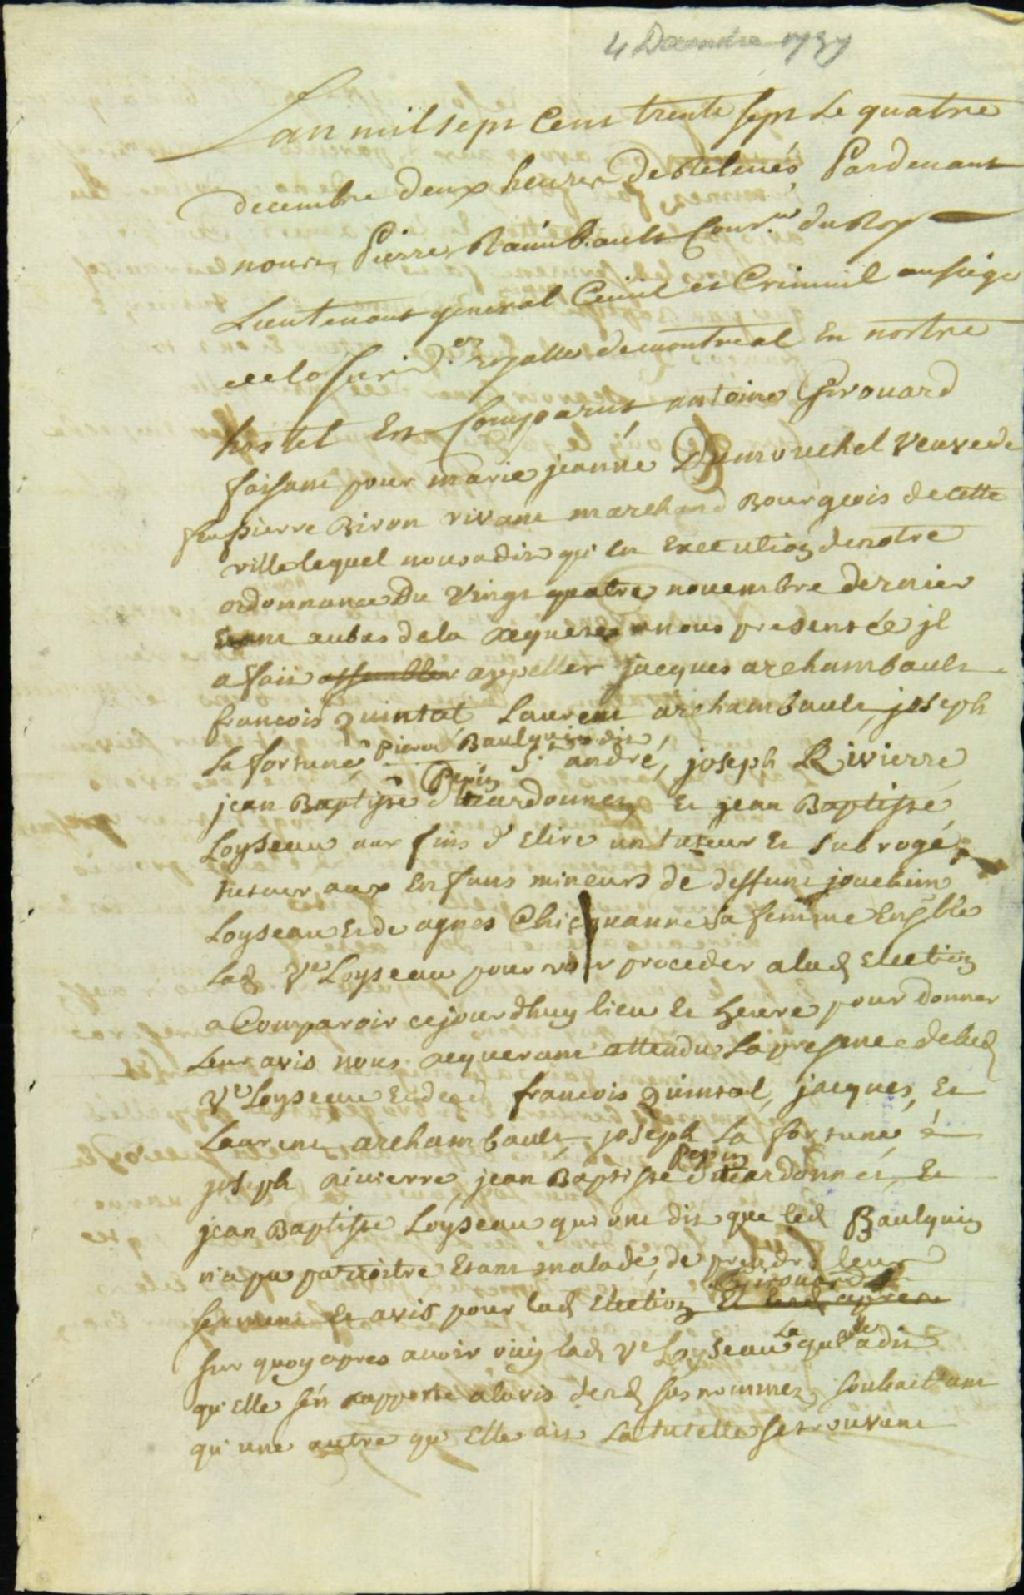 4 Decembre 1737
Lan mil sept Cent trente sept Le quatrie
decembre deux heures de Relevés Pardevant
nous Pierre Raimbault Cons.er du Roy
Lieutenant general Civil et Criminel au siege
de la Jurid.on royalle de montreal En nostre
hostel Est Comparut antoine Girouard
faisant pour marie jeanne Dumouchel Veuve de
feu pierre Biron vivant marchand Bourgeois de cette
ville lequel nous a dit qu'en Execution de notre
ordonnance Du Vingt quatre novembre dernier
Etant au bas de la Requeste a nous presentée jl
a fait assembler appeller jacques archambault
francois quintal Laurent archambault, joseph
La fortune pierre Baulquin dit St andré, joseph Rivierre
jean Baptiste Pepin Et jean Baptiste
Loyseau aux fins d'Elire un tuteur Et subrogé
tuteur aux Enfans mineurs de deffunt joachim
Loyseau Et de agnes sa femme Ensble
lad Ve Loyseau pour voir proceder a lad Election
a Comparoir ce jourdhuy lieu Et heure pour donner
Leur avis nous requerant attendu La presence de lad
Ve Loyseau Et de francois quintal, jacques, Et
Laurent archambault, joseph La fortune
joseph rivierre, jean Baptiste Pepin Et
jean Baptiste Loyseau qui ont dit que led Baulquin
n'a pu paroitre Etant malade, de prendre leur
serment Et avis pour lad Election Girouard
sur quoy apres avoir ouy lad Ve Loyseau Laquelle a dit
qu'Elle s'en rapporte a lavis desd susnommez, souhaittant
qu'une autre qu'Elle ait La tutelle se trouvant